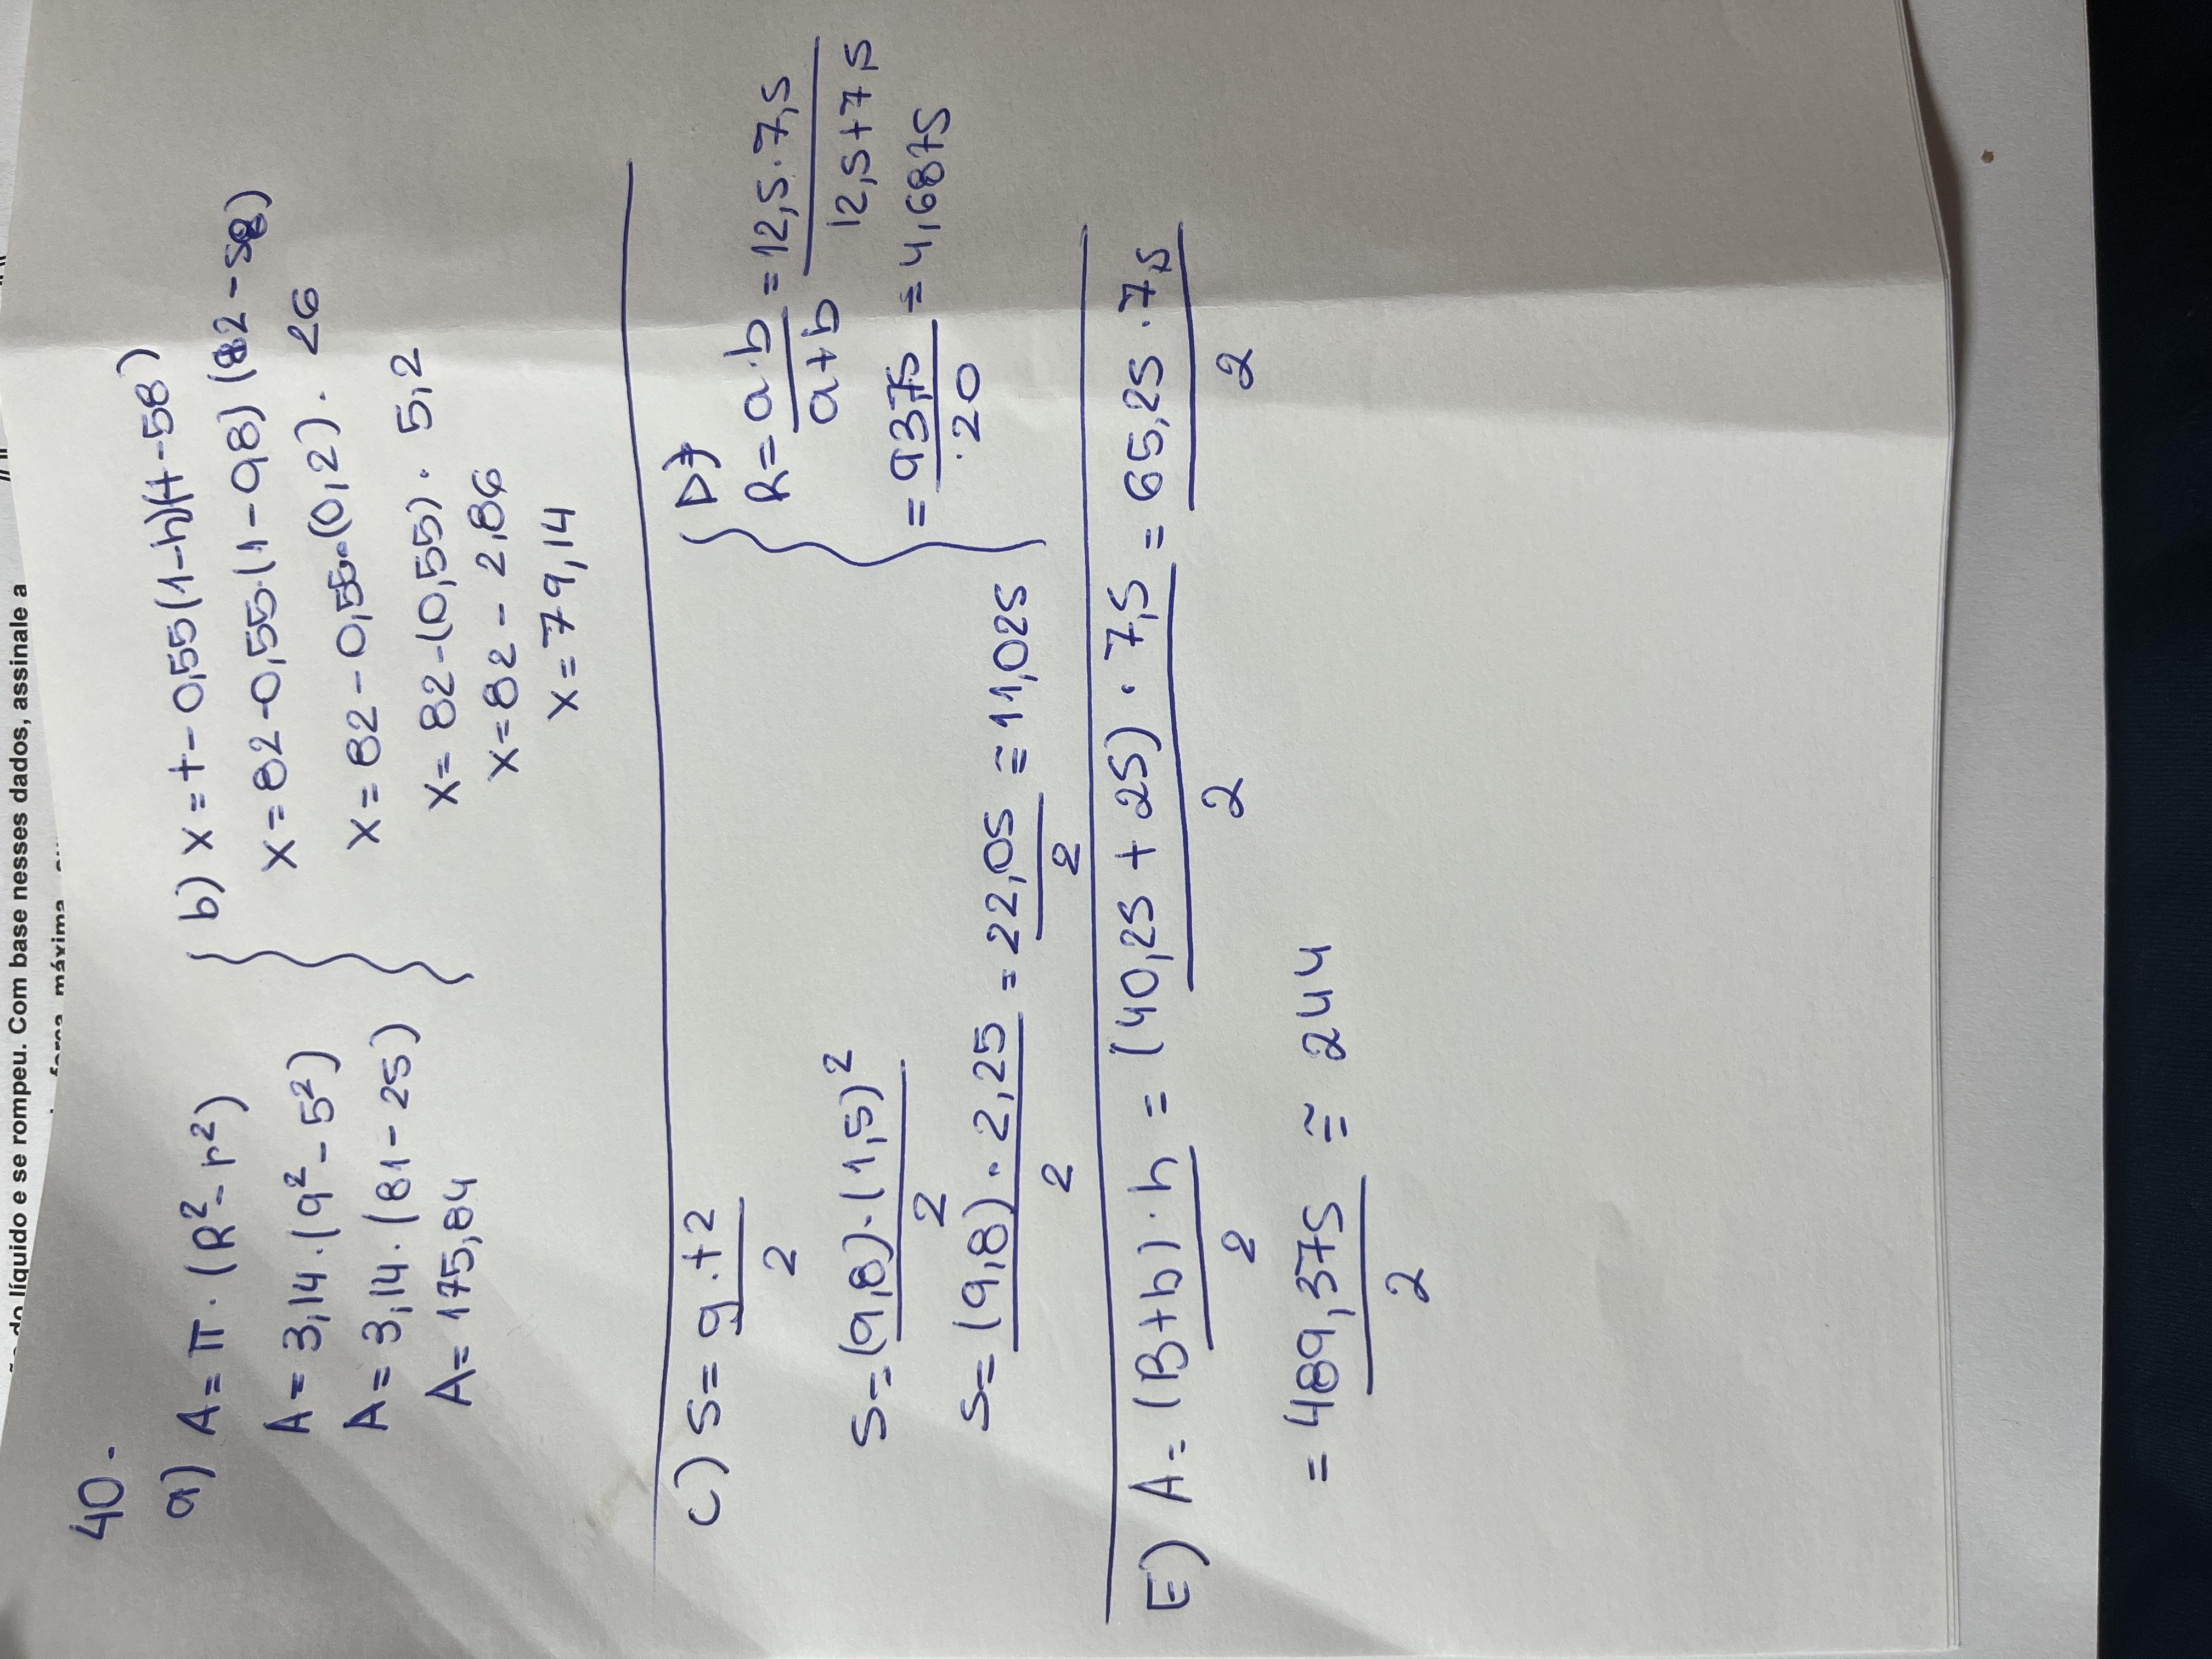 do líquido e se rompeu. Com base nesses dados, assinale a
força máxima
40.
a) A = π · (R² - r²)
A = 3,14 · (9² - 5²)
A = 3,14 · (81 - 25)
A = 175,84
b) x = t - 0,55 (1-h)(t-58)
x = 82 - 0,55 · (1 - 98) (82 - 58)
x = 82 - 0,55 · (0,2) · 26
x = 82 - (0,55) · 5,2
x = 82 - 2,86
x = 79,14
c) S = g · t2 / 2
S = (9,8) · (1,5)² / 2
S = (9,8) · 2,25 / 2 = 22,05 / 2 ≅ 11,025
D)
R = a · b / a + b = 12,5 · 7,5 / 12,5 + 7,5
= 9375 / 20 = 4,6875
E) A = (B + b) · h / 2 = (40,25 + 25) · 7,5 / 2 = 65,25 · 7,5 / 2
= 489,375 / 2 ≅ 244